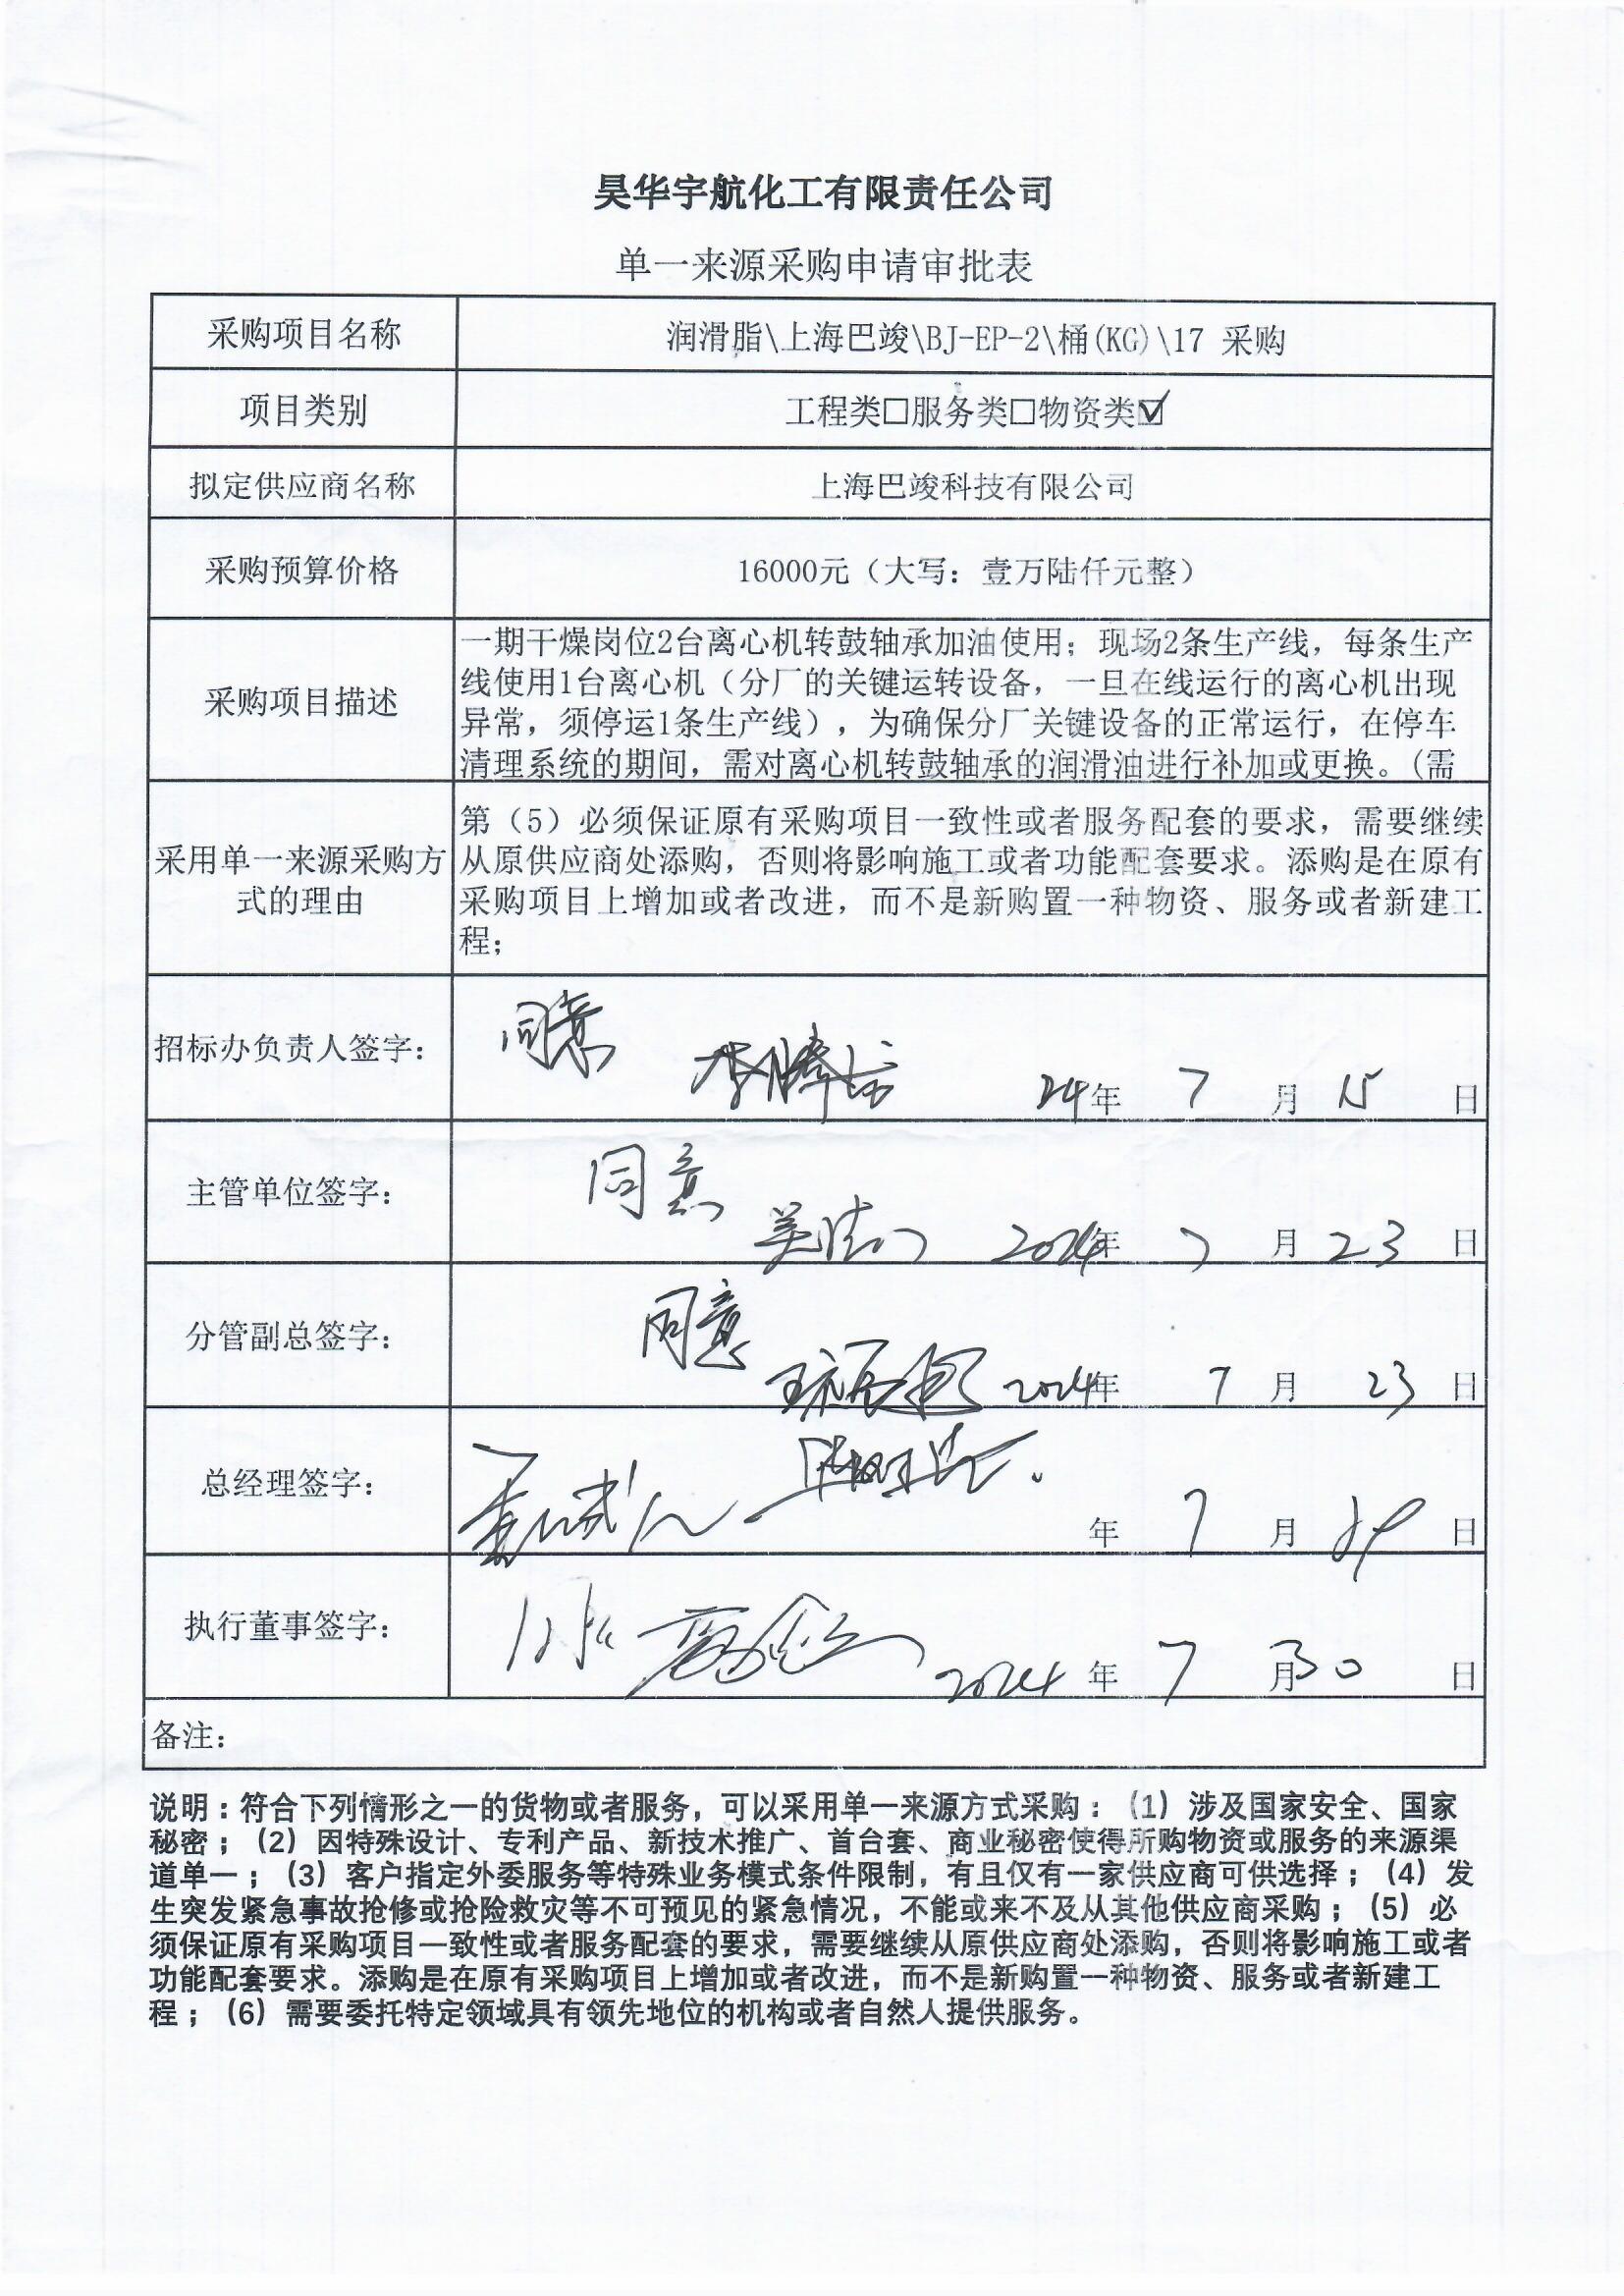 昊华宇航化工有限责任公司
单一来源采购申请审批表
采购项目名称
润滑脂\上海巴竣\BJ-EP-2\桶(KG)\17 采购
项目类别
工程类□服务类□物资类☑
拟定供应商名称
上海巴竣科技有限公司
采购预算价格
16000元（大写：壹万陆仟元整）
采购项目描述
一期干燥岗位2台离心机转鼓轴承加油使用；现场2条生产线，每条生产
线使用1台离心机（分厂的关键运转设备，一旦在线运行的离心机出现
异常，须停运1条生产线），为确保分厂关键设备的正常运行，在停车
清理系统的期间，需对离心机转鼓轴承的润滑油进行补加或更换。(需
采用单一来源采购方
式的理由
第（5）必须保证原有采购项目一致性或者服务配套的要求，需要继续
从原供应商处添购，否则将影响施工或者功能配套要求。添购是在原有
采购项目上增加或者改进，而不是新购置一种物资、服务或者新建工
程；
招标办负责人签字：
同意
24年 7 月 15 日
主管单位签字：
同意
2024年 7 月 23 日
分管副总签字：
同意
2024年 7 月 23 日
总经理签字：
年 7 月 日
执行董事签字：
2024 年 7 月30 日
备注：
说明：符合下列情形之一的货物或者服务，可以采用单一来源方式采购：（1）涉及国家安全、国家
秘密；（2）因特殊设计、专利产品、新技术推广、首台套、商业秘密使得所购物资或服务的来源渠
道单一；（3）客户指定外委服务等特殊业务模式条件限制，有且仅有一家供应商可供选择；（4）发
生突发紧急事故抢修或抢险救灾等不可预见的紧急情况，不能或来不及从其他供应商采购；（5）必
须保证原有采购项目一致性或者服务配套的要求，需要继续从原供应商处添购，否则将影响施工或者
功能配套要求。添购是在原有采购项目上增加或者改进，而不是新购置一种物资、服务或者新建工
程；（6）需要委托特定领域具有领先地位的机构或者自然人提供服务。